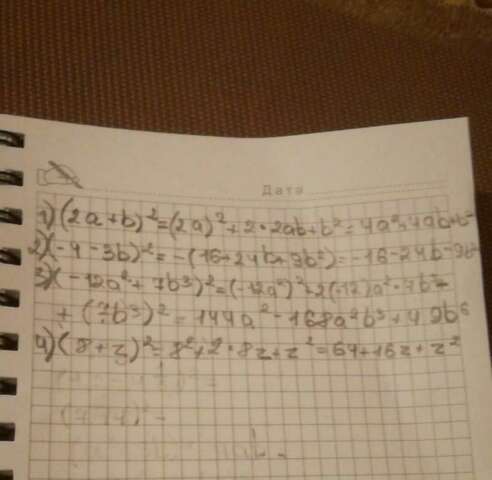 Дата
1) (2a+b)²=(2a)²+2·2ab+b²=4a²+4ab+b²
2) (-4-3b)²=-(16+24b+9b²)=-16-24b-9b²
3) (-12a²+7b³)²=(-12a²)²+2(-12)a²·7b³+
+(7b³)²=144a²-168a²b³+49b⁶
4) (8+z)²=8²+2·8z+z²=64+16z+z²